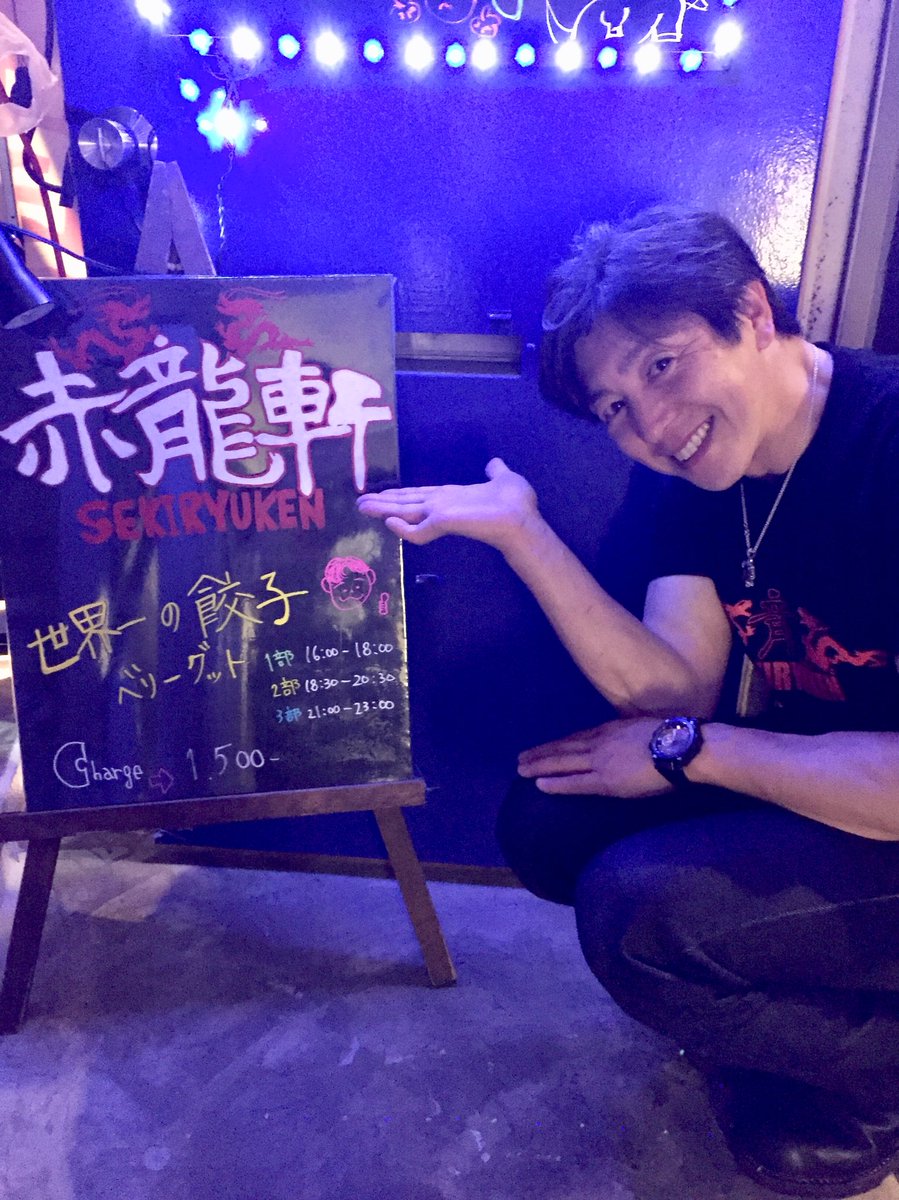 赤龍軒
SEKIRYUKEN
世界一の餃子
ベリーグット
1部 16:00-18:00
2部 18:30-20:30
3部 21:00-23:00
Charge ⇨ 1.500-